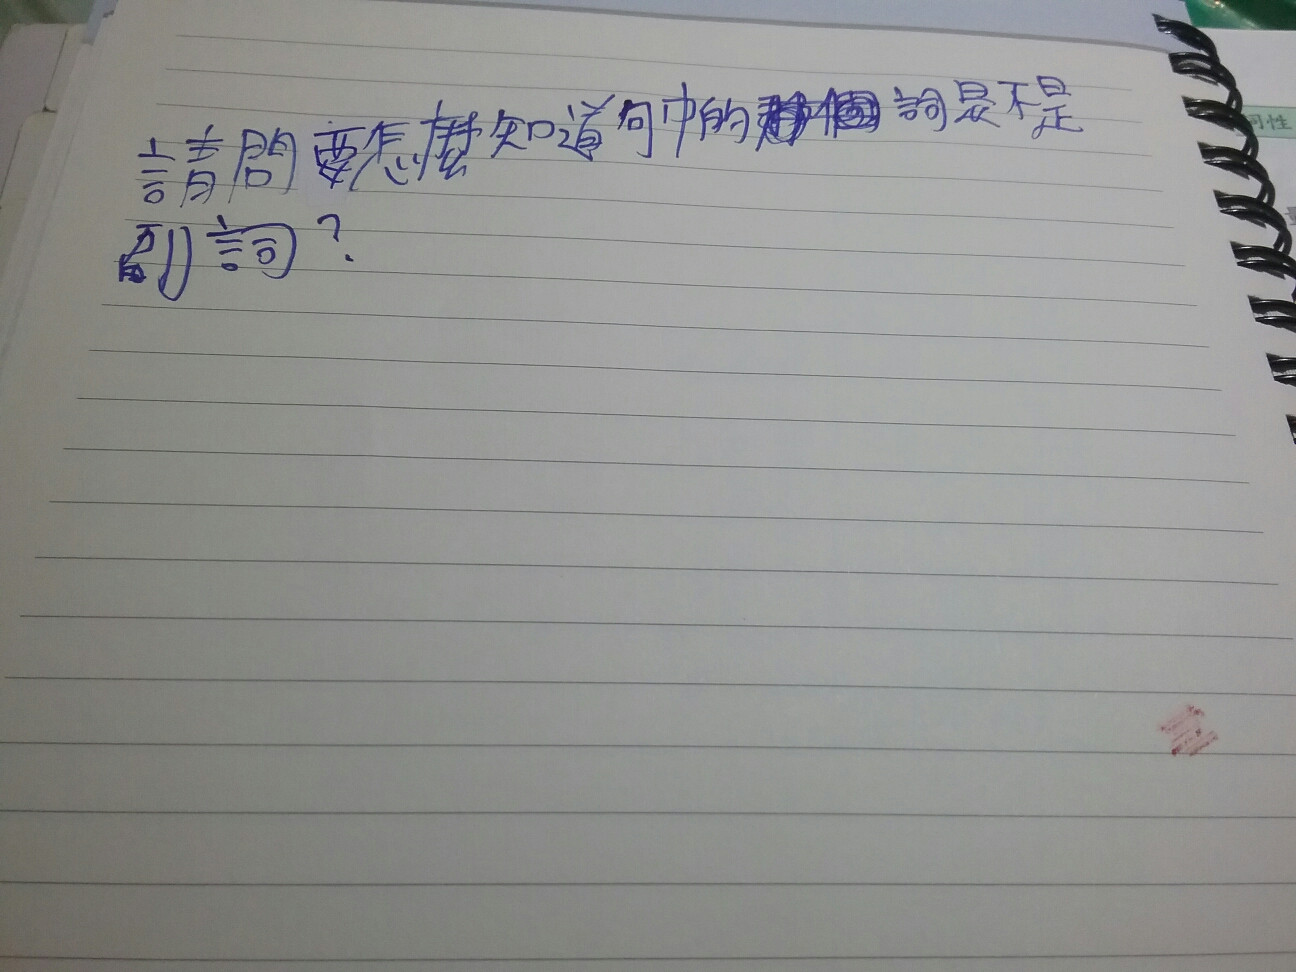 請問要怎麼知道句中的詞是不是
副詞？
詞性